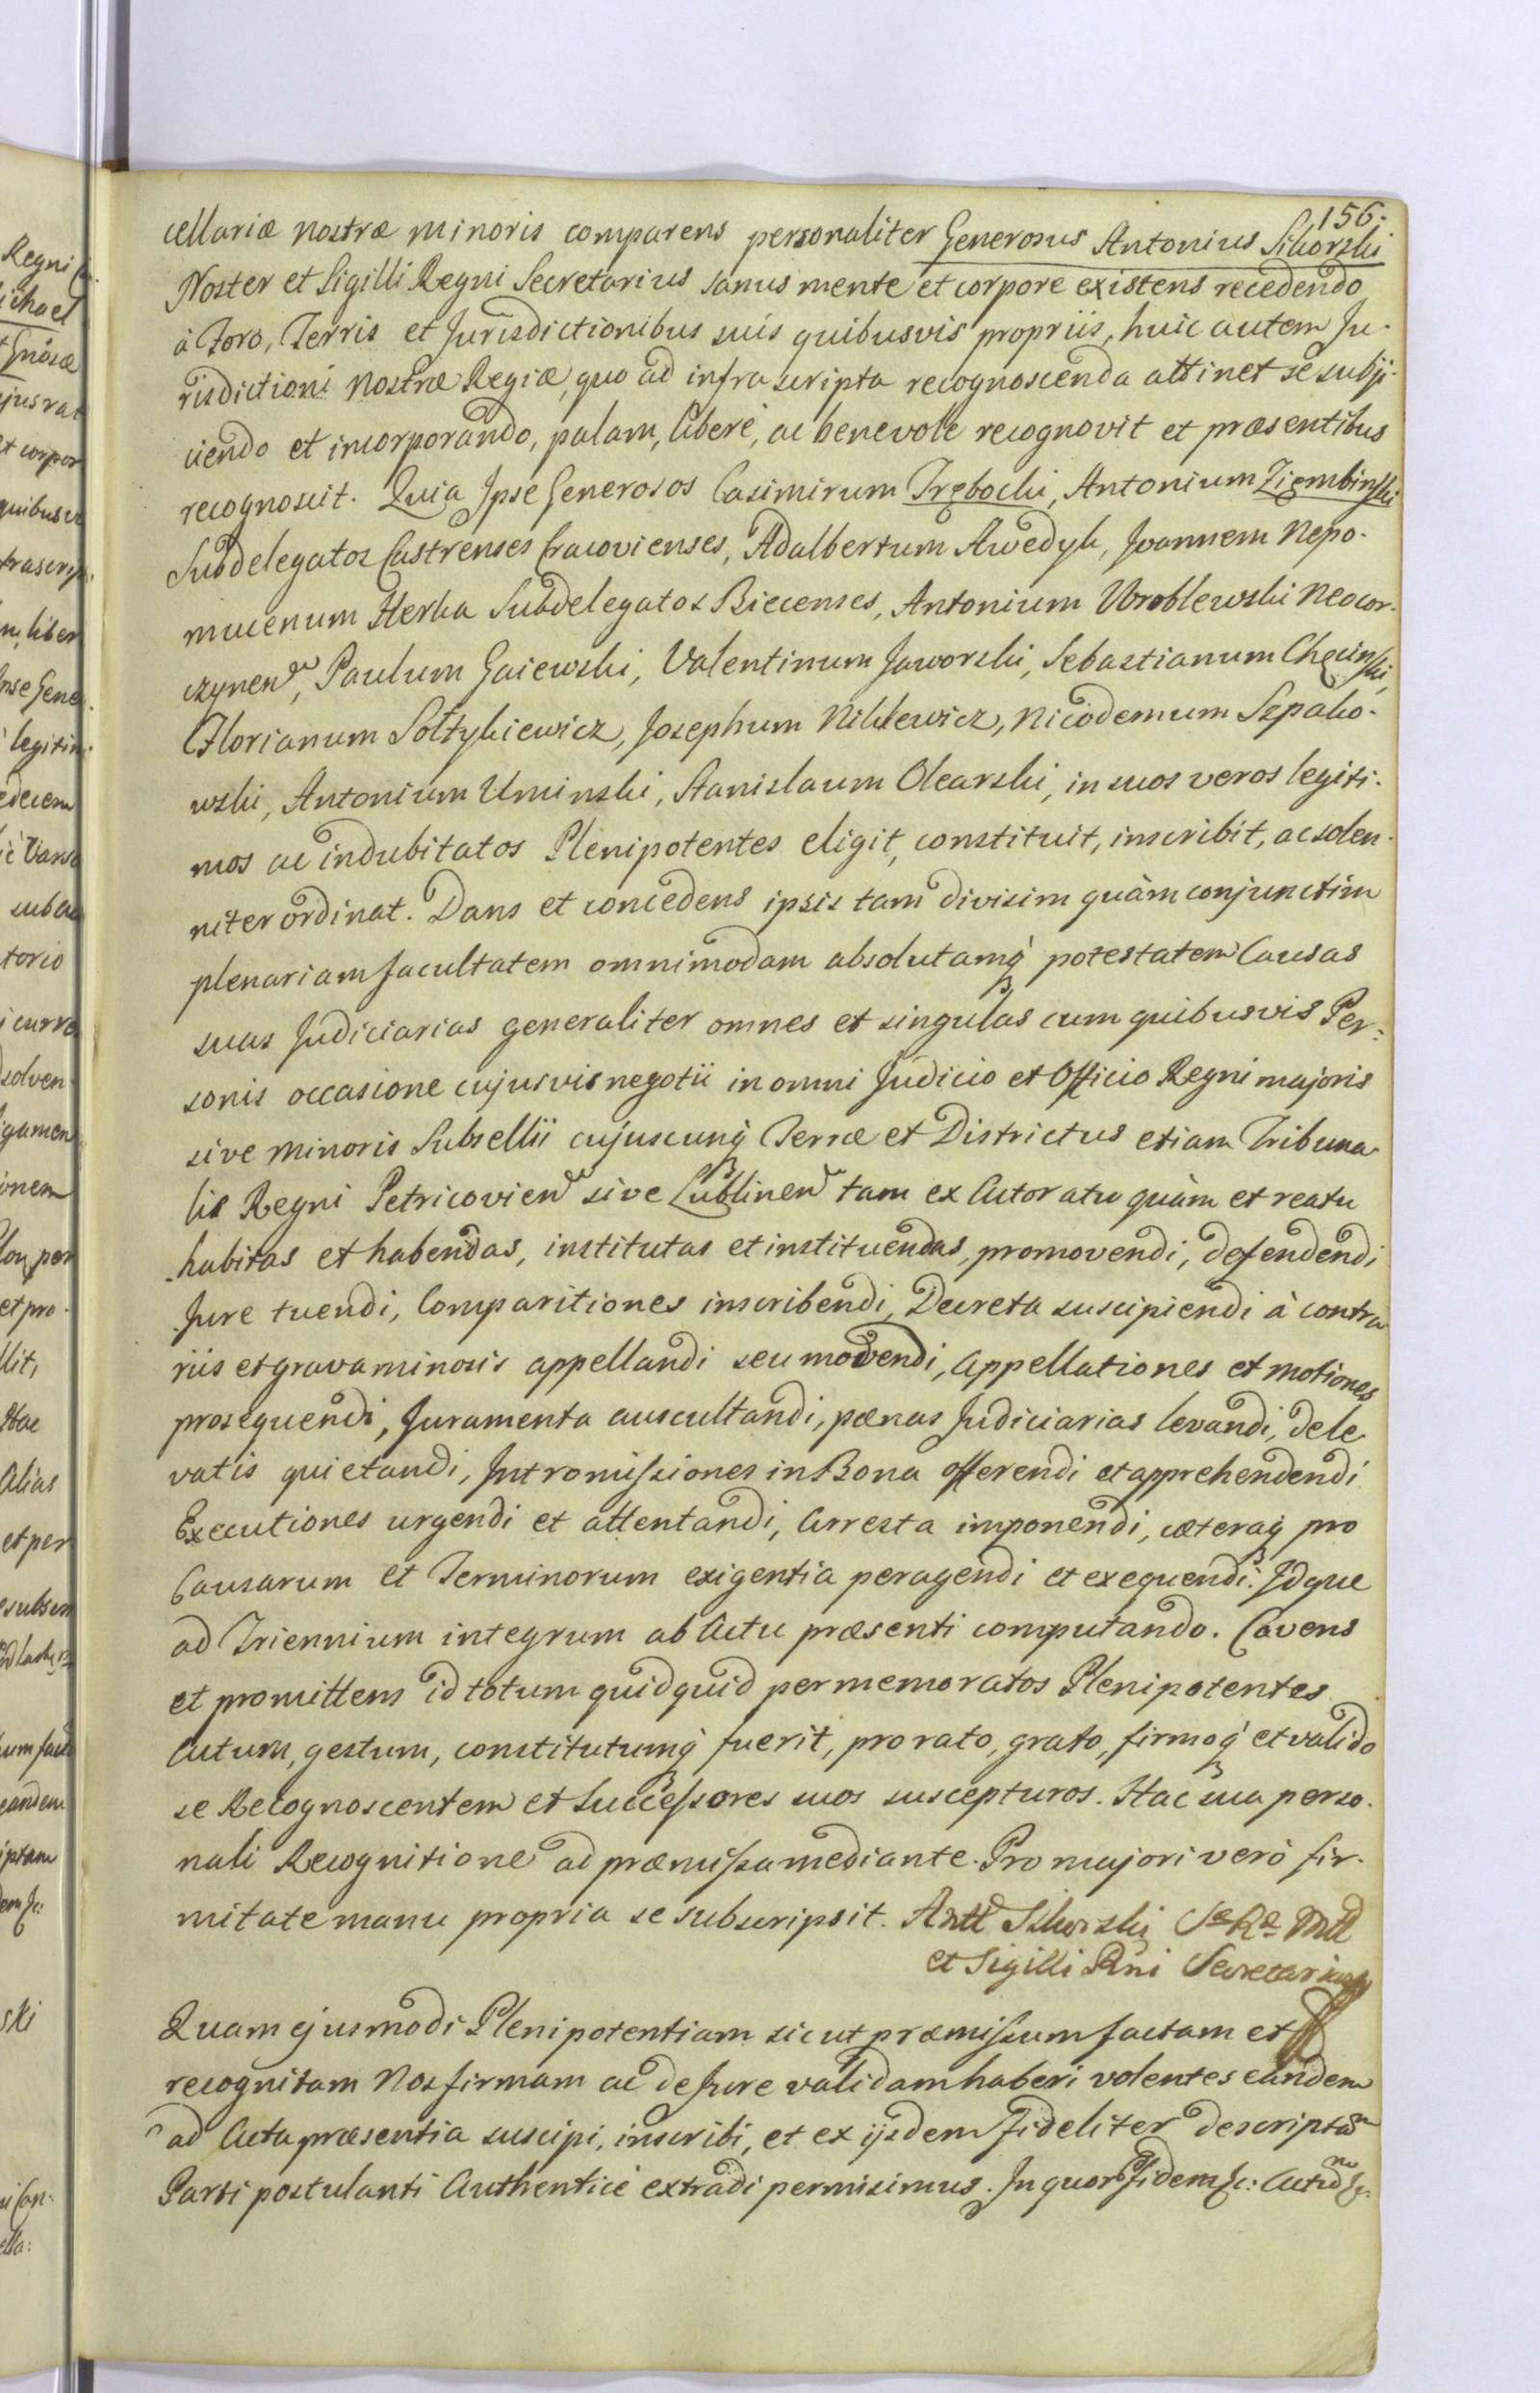 156.
cellariæ nostræ minoris comparens personaliter Generosus Antonius Sikorski
Noster et Sigilli Regni Secretarius sanus mente et corpore existens recedendo
à Foro, Terris et Jurisdictionibus suis quibusvis propriis, huic autem Ju-
risdictioni nostræ Regiæ, quo ad infra scripta recognoscenda attinet se subji-
ciendo et incorporando, palam, liberè, ac benevole recognovit et præsentibus
recognoscit. Quia Ipse Generosos Casimirum Trębocki, Antonium Ziembinski
Subdelegatos Castrenses Cracovienses, Adalbertum Awedyk, Joannem Nepo-
mucenum Herka Subdelegatos Biecenses, Antonium Wroblewski Neocor-
czynen, Paulum Gaiewski, Valentinum Jaworski, Sebastianum Chęcinski,
Florianum Sołtykiewicz, Josephum Niklewicz, Nicodemum Szpako-
wski, Antonium Uminski, Stanislaum Olearski, in suos veros legiti-
mos ac indubitatos Plenipotentes eligit, constituit, inscribit, ac solen-
niter ordinat. Dans et concedens ipsis tam divisim quàm conjunctim
plenariam facultatem omnimodam absolutamq̨ potestatem Causas
suas Judiciarias generaliter omnes et singulas cum quibusvis Per-
sonis occasione cujusvis negotii in omni Judicio et Officio Regni majoris
sive minoris Subsellii cujuscunq̨ Terræ et Districtus etiam Tribuna
lis Regni Petricovien sive Lublinen tam ex Actoratu quàm et reatu
habitas et habendas, institutas et instituendas, promovendi, defendendi
Jure tuendi, Comparitiones inscribendi, Decreta suscipiendi à contra
riis et gravaminosis appellandi seu movendi, Appellationes et motiones
prosequendi, Juramenta auscultandi, pænas Judiciarias levandi, de le
vatis quietandi, Intromissiones in Bona offerendi et apprehendendi
Executiones urgendi et attentandi, Arresta imponendi, cæteraq̨ pro
Causarum et Terminorum exigentia peragendi et exequendi. Idque
ad Triennium integrum ab Actu præsenti computando. Cavens
et promittens id totum quidquid per memoratos Plenipotentes
Actum, gestum, constitutumq̨ fuerit, pro rato, grato, firmoq̨ et valido
se Recognoscentem et Successores suos suscepturos. Hac sua perso-
nali Recognitione ad præmissa mediante. Pro majori verò fir-
mitate manu propria se subscripsit. Antt Sikorski
et Sigilli Rni Secretarius
Quam ejusmodi Plenipotentiam sicut præmissum factam et
recognitam Nos firmam ac de Jure validam haberi volentes eandem
ad Acta præsentia suscipi, inscribi, et ex ijsdem fideliter descriptam
Parti postulanti Authenticè extradi permisimus. In quor fidem